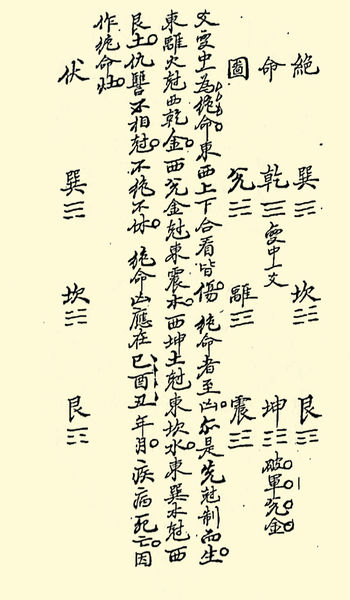 絕 巽☴ 坎☵ 艮☶
命 乾☰變中爻 坤☷破軍兌金
圖 兌☱ 離☲ 震☳
爻變中為絕命。東西上下合看皆傷。絕命者至凶。尒是先尅制而生。
東離火尅西乾金。西兌金尅東震木。西坤土尅東坎水。東巽木尅西
艮土。仇讐不相尅。不絕不休。絕命凶應在巳酉丑年月。疾病死亡。因
作絕命灶。
伏 巽☴ 坎☵ 艮☶